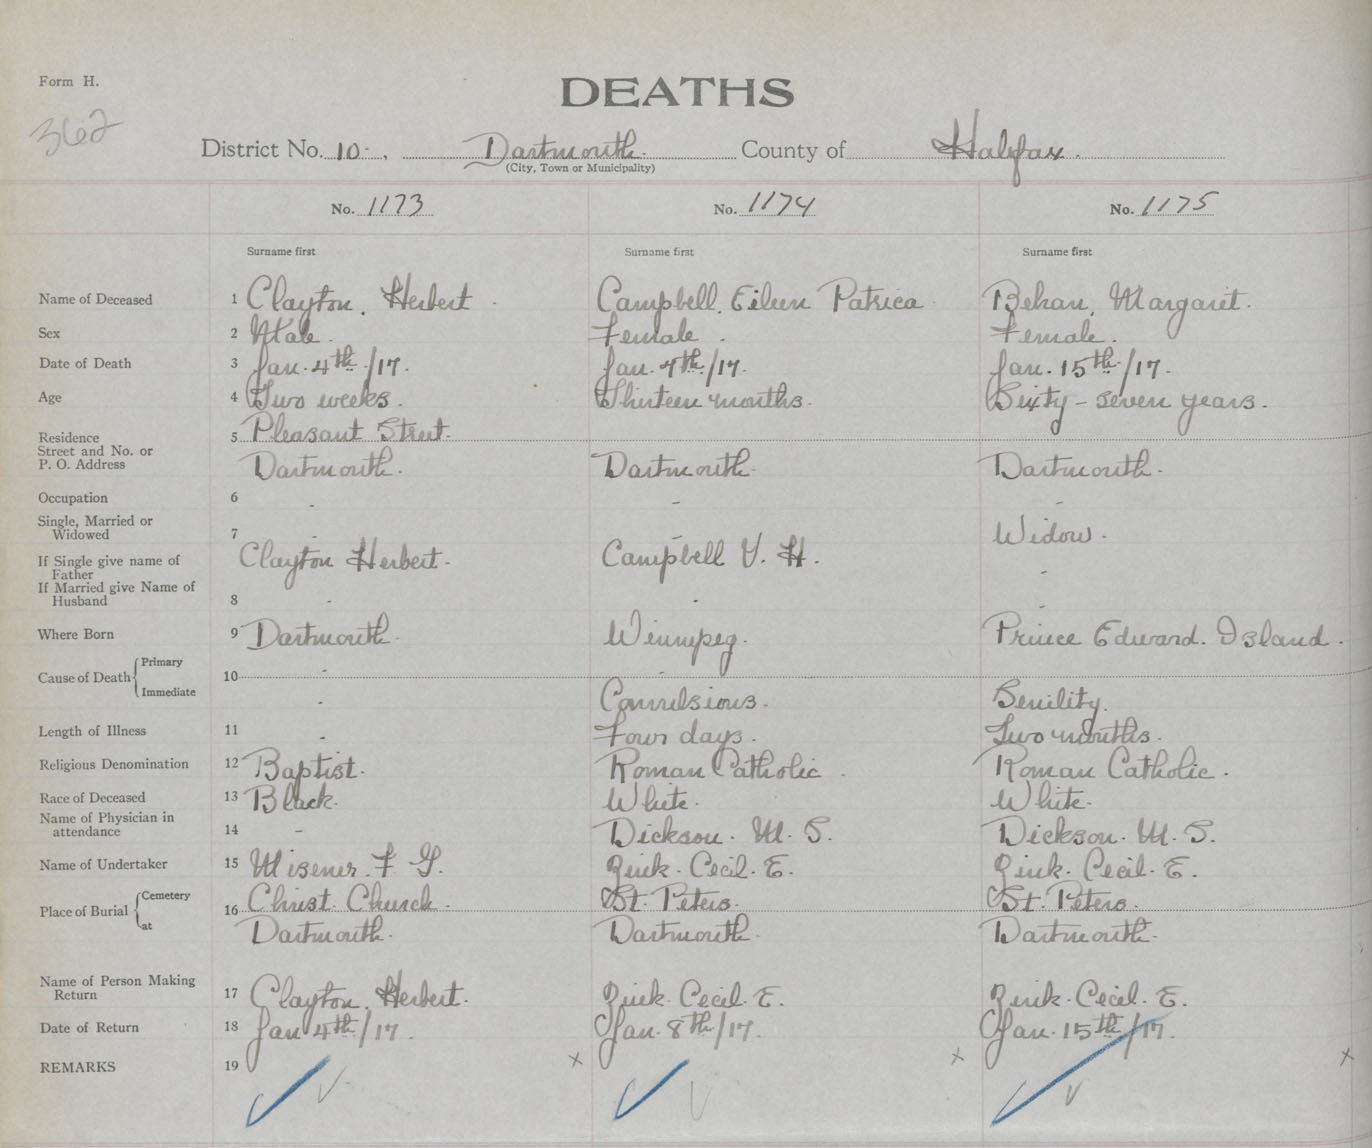 Form H.
DEATHS
362
District No. 10. Dartmouth. County of Halifax.
(City, Town or Municipality)
No. 1173 No. 1174 No. 1175
Surname first Surname first Surname first
Name of Deceased 1 Clayton, Herbert. Campbell, Eileen Patrica Behan, Margaret.
Sex 2 Male. Female. Female.
Date of Death 3 Jan. 4th/17. Jan. 7th/17. Jan. 15th/17.
Age 4 Two weeks. Thirteen months. Sixty-seven years.
Residence 5 Pleasant Street.
Street and No. or
P. O. Address Dartmouth. Dartmouth. Dartmouth.
Occupation 6 - - -
Single, Married or
Widowed 7 - - Widow.
If Single give name of
Father Clayton Herbert. Campbell V. H. -
If Married give Name of
Husband 8 - - -
Where Born 9 Dartmouth. Winnipeg. Prince Edward. Island.
Cause of Death Primary 10 -
Immediate - Convulsions. Senility.
Length of Illness 11 - Four days. Two months.
Religious Denomination 12 Baptist. Roman Catholic. Roman Catholic.
Race of Deceased 13 Black. White. White.
Name of Physician in
attendance 14 - Dickson. M. S. Dickson. M. S.
Name of Undertaker 15 Misener. F. G. Zink. Cecil. E. Zink. Cecil. E.
Place of Burial Cemetery 16 Christ. Church. St. Peters. St. Peters.
at Dartmouth. Dartmouth. Dartmouth.
Name of Person Making
Return 17 Clayton, Herbert. Zink. Cecil. E. Zink. Cecil. E.
Date of Return 18 Jan 4th/17. Jan. 8th/17. Jan. 15th/17.
REMARKS 19 x x x